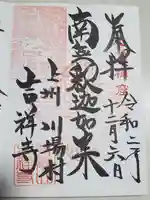 奉拝 令和二年
十二月六日
南無釈迦如来
上州 川場村
吉祥寺